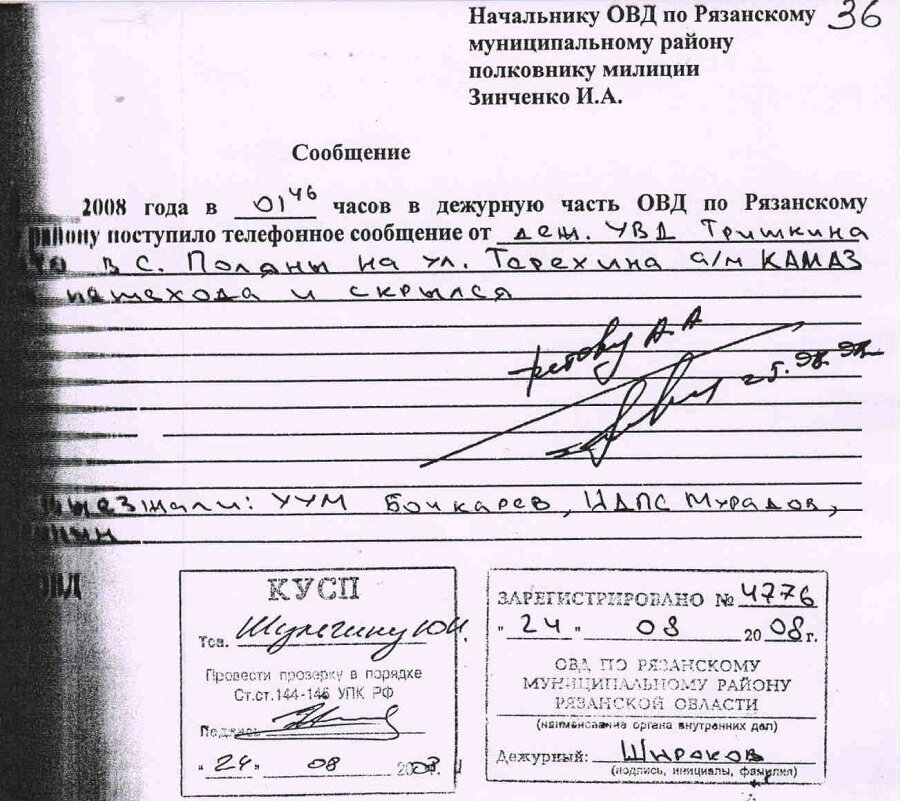 36
Начальнику ОВД по Рязанскому
муниципальному району
полковнику милиции
Зинченко И.А.
Сообщение
2008 года в 01 46 часов в дежурную часть ОВД по Рязанскому
району поступило телефонное сообщение от деж. УВД Тришкина
в с. Поляны на ул. Терехина а/м КАМАЗ
пешехода и скрылся
А А
выезжали: УУМ Бочкарев, ИДПС Мурадов,
ОВД
КУСП
Тов. Шулегину Ю.И.
Провести проверку в порядке
Ст.ст.144-145 УПК РФ
Подпись
"24" 08 2008г.
ЗАРЕГИСТРИРОВАНО № 4776
"24" 08 2008г.
ОВД ПО РЯЗАНСКОМУ
МУНИЦИПАЛЬНОМУ РАЙОНУ
РЯЗАНСКОЙ ОБЛАСТИ
(наименование органа внутренних дел)
Дежурный: Широков
(подпись, инициалы, фамилия)